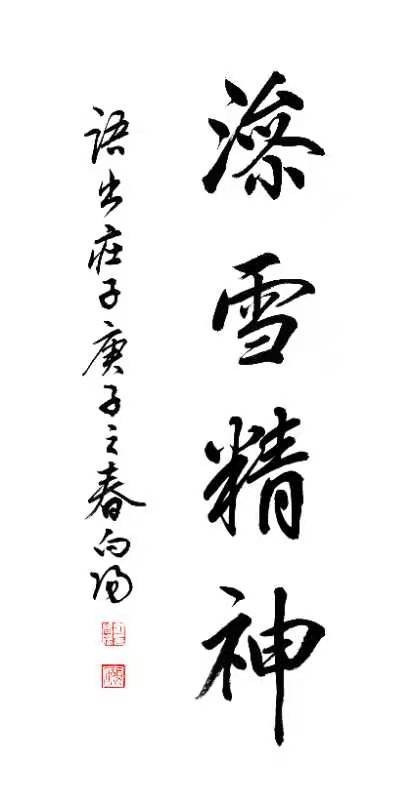 澡雪精神
語出庄子庚子之春向陽